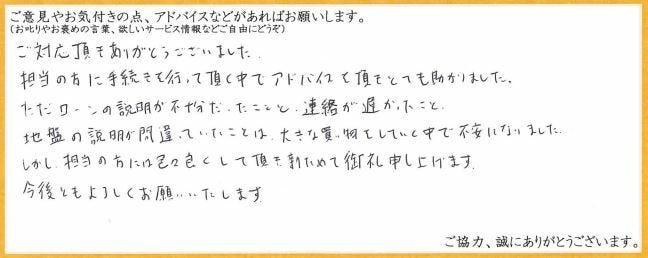 ご意見やお気付きの点、アドバイスなどがあればお願いします。
(お叱りやお褒めの言葉、欲しいサービス情報などご自由にどうぞ)
ご対応頂きありがとうございました.
担当の方に手続きを行って頂く中でアドバイスも頂きとても助かりました。
ただローンの説明が不十分だったことと、連絡が遅かったこと、
地盤の説明が間違っていたことは、大きな買い物をしていく中で不安になりました。
しかし、担当の方には色々良くして頂き新ためて御礼申し上げます.
今後ともよろしくお願いいたします
ご協力、誠にありがとうございます。